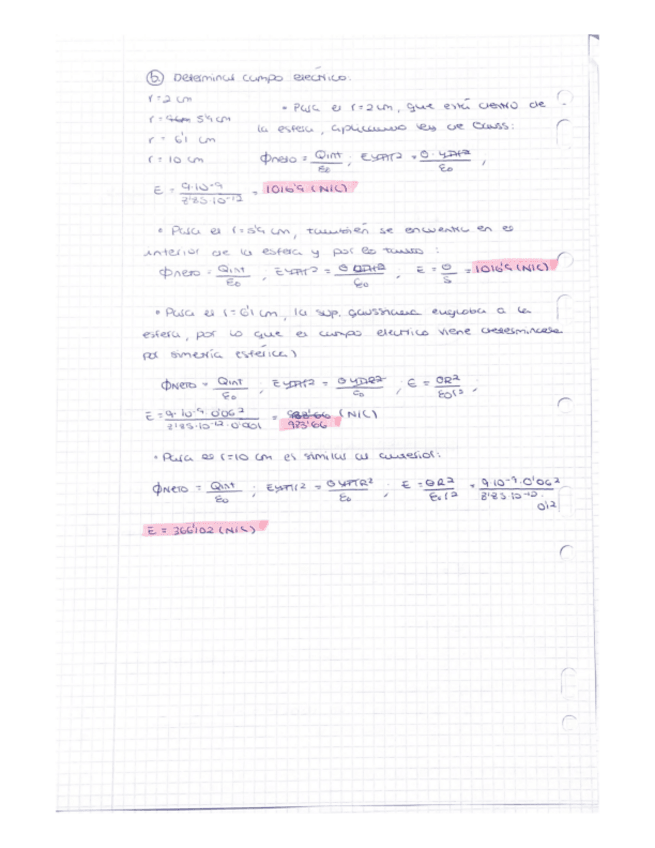 b) Determinar campo eléctrico:
r = 2 cm
r = 5'9 cm
• Para el r = 2 cm, que está dentro de
la esfera, aplicamos ley de Gauss:
r = 6'1 cm
r = 10 cm
ΦNeto = Qint/ε0 ; E4πr² = σ·4πr²/ε0 ,
E = 9·10⁻⁹/8'85·10⁻¹² = 1016'9 (N/C)
• Para el r = 5'9 cm, también se encuentra en el
interior de la esfera y por lo tanto :
ΦNeto = Qint/ε0 , E4πr² = σ 4πr²/ε0 , E = σ/ε = 1016'9 (N/C)
• Para el r = 6'1 cm, la sup. gaussiana engloba a la
esfera, por lo que el campo eléctrico viene
por simetría esférica)
ΦNeto = Qint/ε0 ; E4πr² = σ4πR²/ε0 ; E = σR²/ε0r² ,
E = 9·10⁻⁹·0'06²/8'85·10⁻¹²·0'061 = 983'66 (N/C)
• Para el r = 10 cm es similar al anterior:
ΦNeto = Qint/ε0 ; E4πr² = σ4πR²/ε0 ; E = σR²/ε0r² = 9·10⁻⁹·0'06²/8'85·10⁻¹²·0'1²
E = 366'102 (N/C)